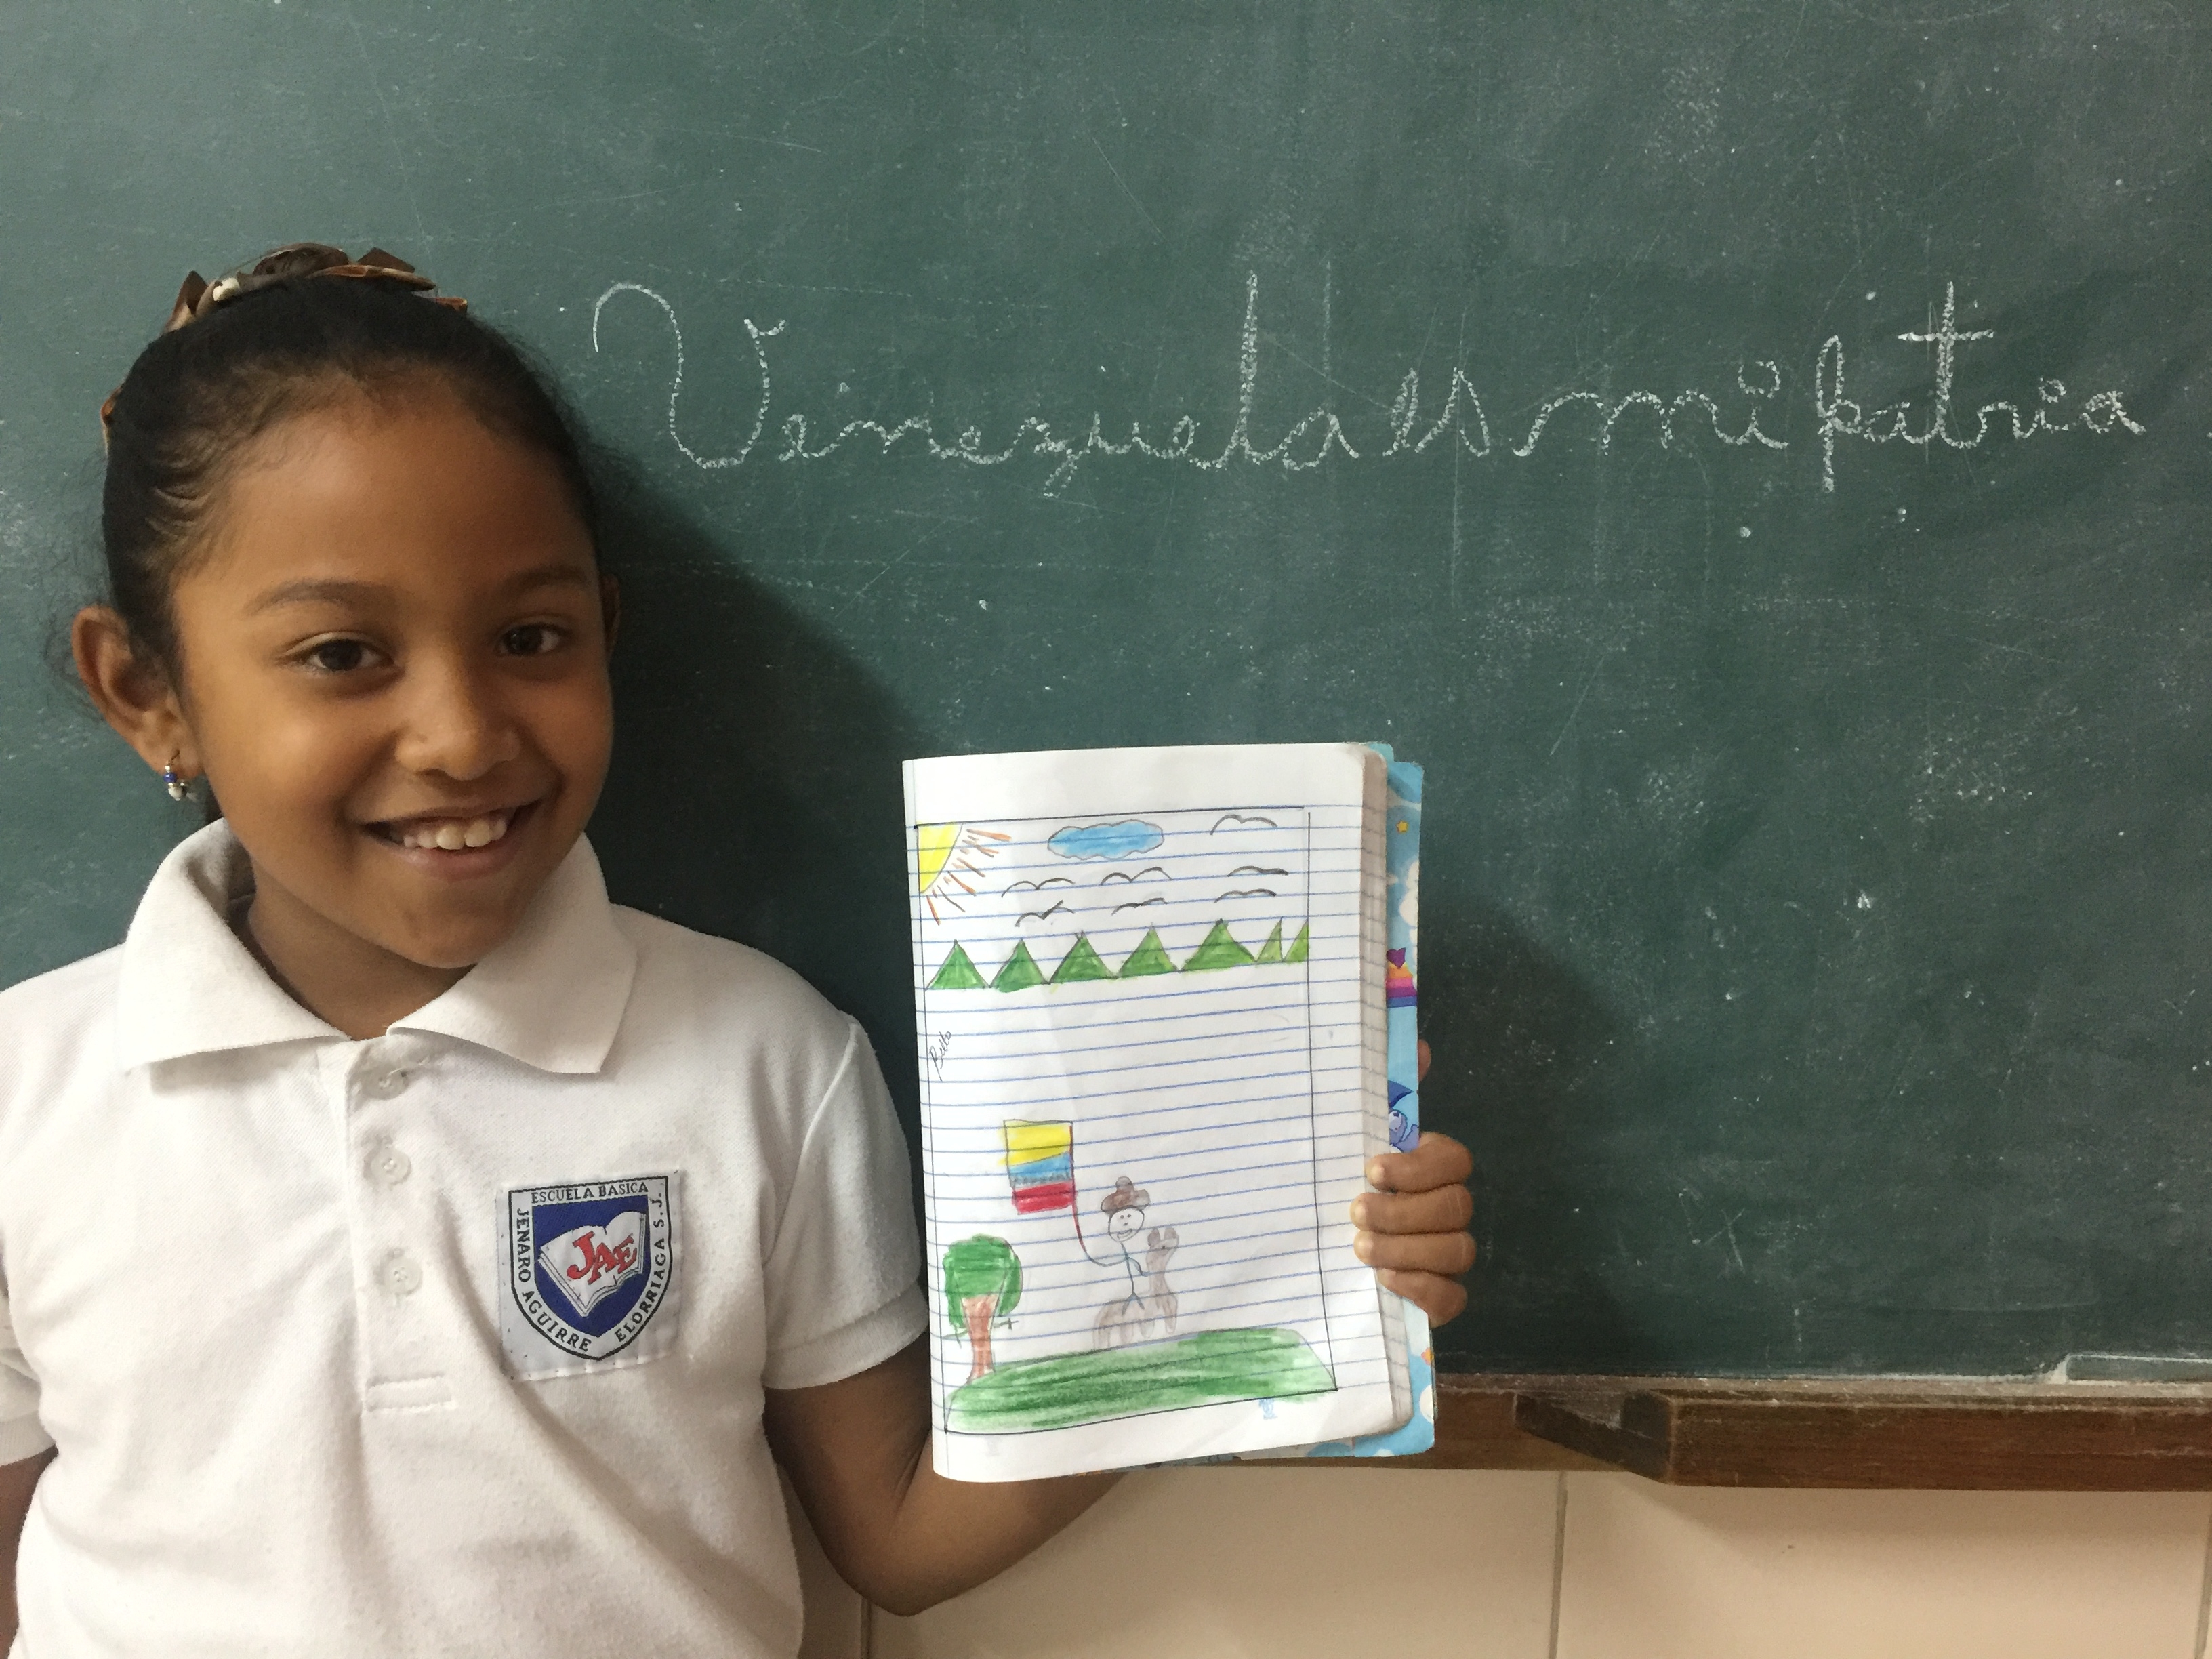 Venezuela es mi patria
Bello
ESCUELA BASICA
JENARO AGUIRRE ELORRIAGA S.J.
JAE